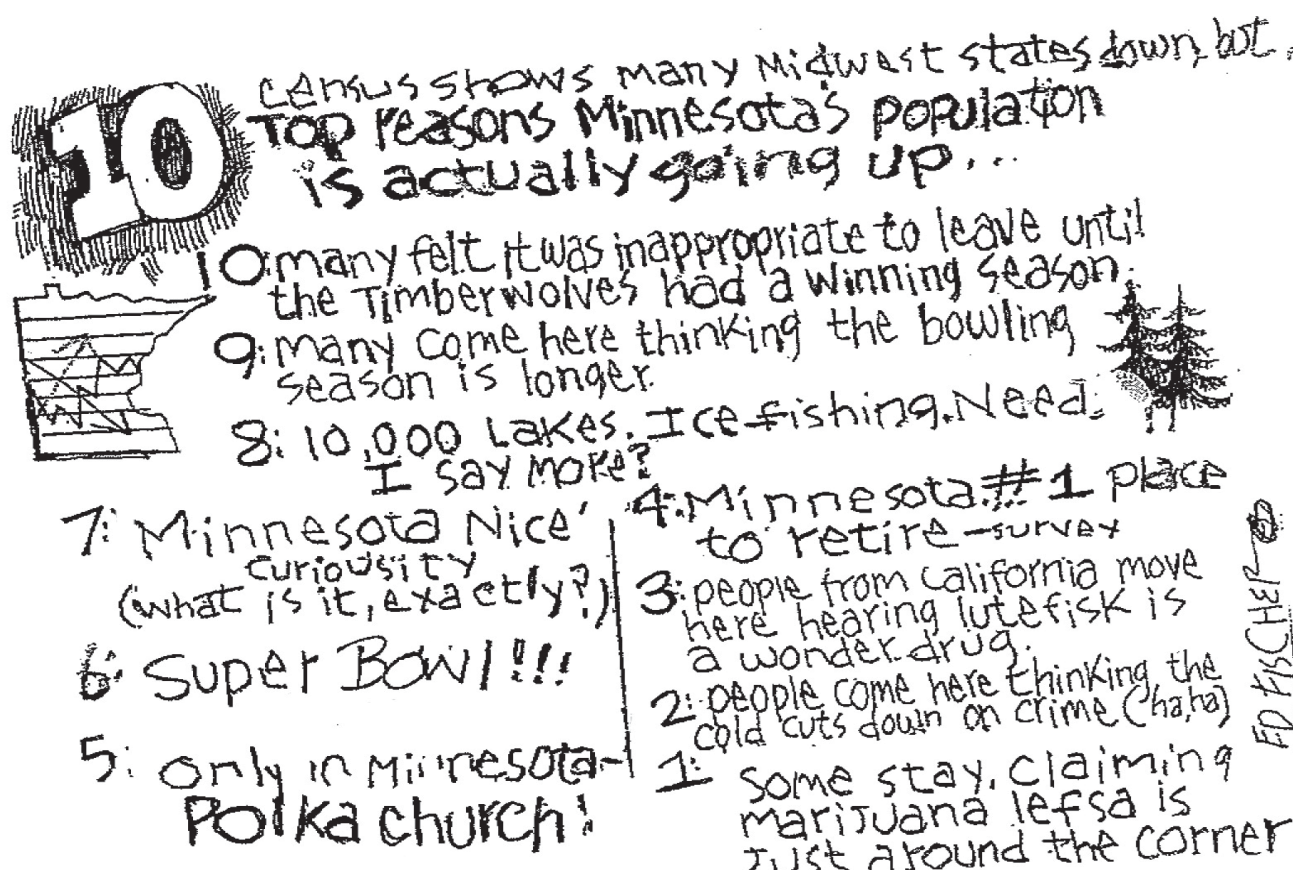 10
census shows many Midwest states down, but
Top reasons Minnesota's population
is actually going up...
10: many felt it was inappropriate to leave until
the Timberwolves had a winning season.
9: many come here thinking the bowling
season is longer.
8: 10,000 Lakes. Ice fishing. Need
I say more?
7: 'Minnesota Nice'
curiousity
(what is it, exactly?)
6: Super Bowl!!!
5: only in Minnesota-
Polka church!
4: Minnesota #1 place
to retire-survey
3: people from California move
here hearing lutefisk is
a wonder drug.
2: people come here thinking the
cold cuts down on crime (ha, ha)
1: Some stay, claiming
marijuana lefsa is
just around the corner
ED FISCHER